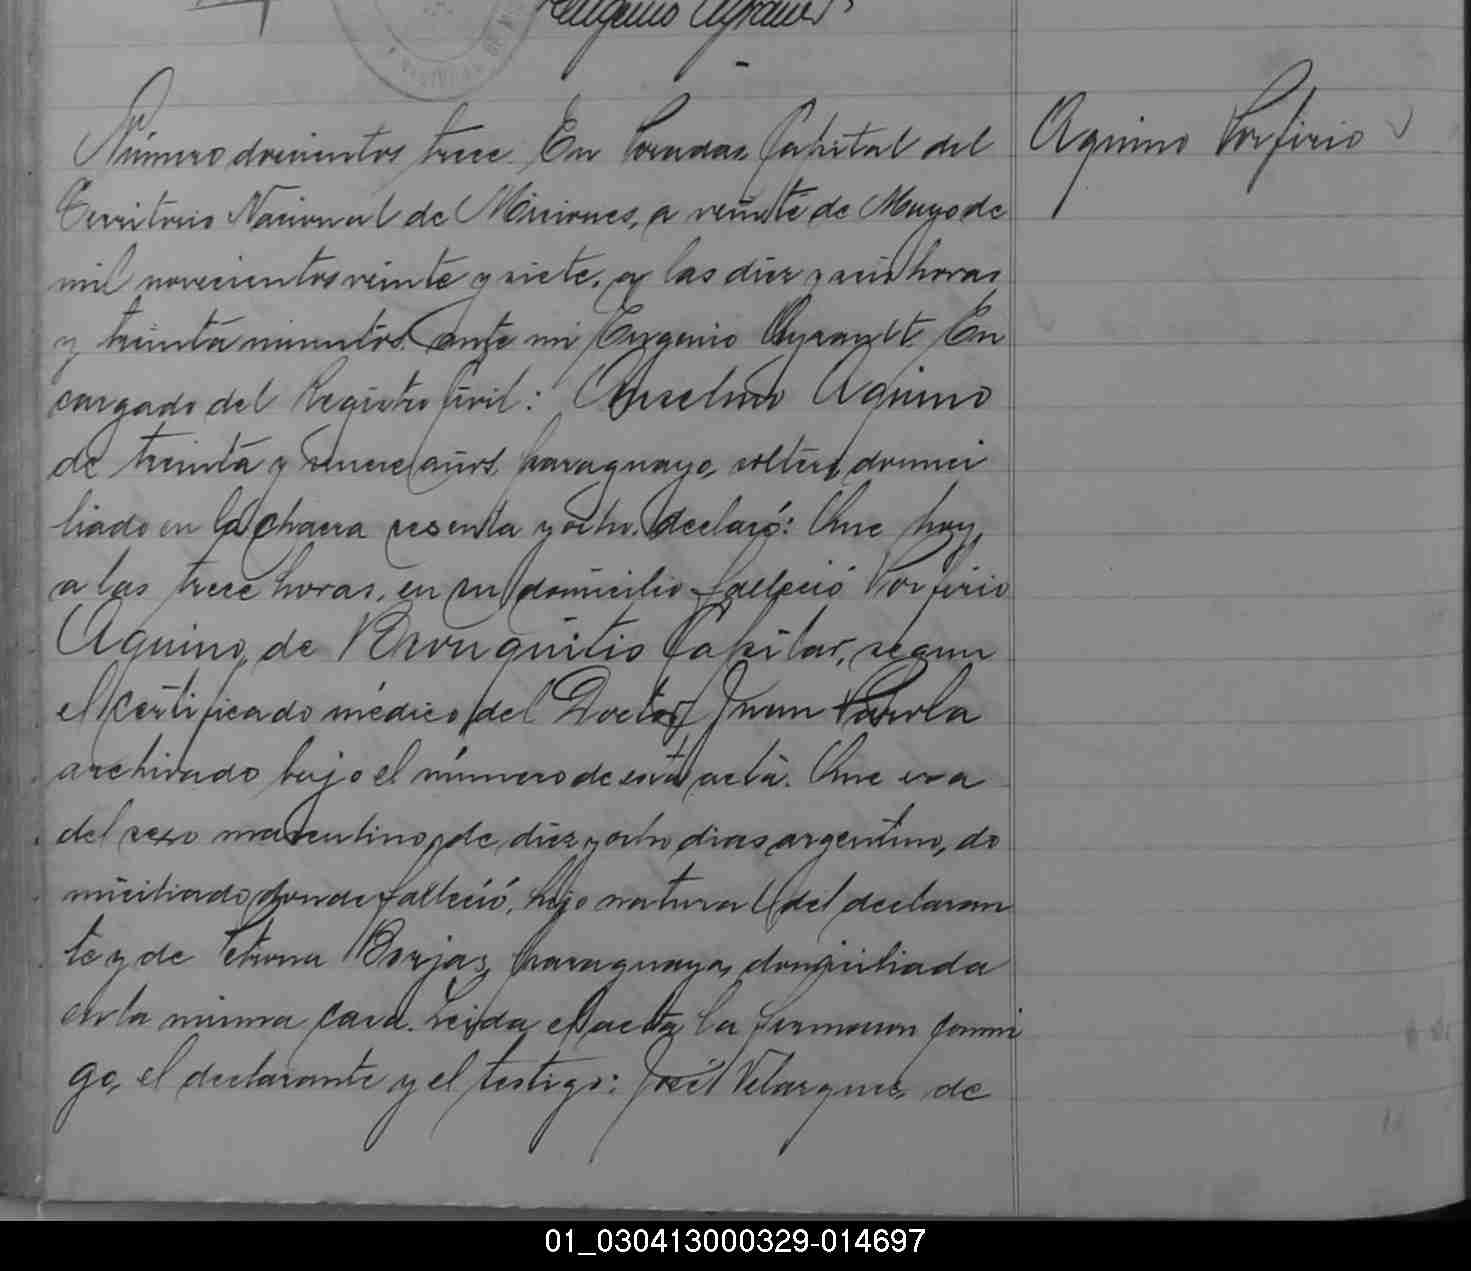 Eugenio Ayrault
Número doscientos trece. En Posadas, Capital del
Aquino Porfirio
Territorio Nacional de Misiones, a veinte de Mayo de
mil novecientos veinte y siete, a las diez y seis horas
y treinta minutos, ante mi Eugenio Ayrault En
cargado del Registro Civil: Anselmo Aquino
de treinta y nueve años, paraguayo, soltero, domici
liado en la chacra sesenta y ocho, declaró: Que hoy,
a las trece horas, en su domicilio falleció Porfirio
Aquino, de Bronquitis Capilar, segun
el certificado médico del Doctor Juan
archivado bajo el número de esta acta. Que era
del sexo masculino, de diez y ocho dias, argentino, do
miciliado donde falleció, hijo natural del declaran
te y de Petrona Borjas, paraguaya, domiciliada
en la misma casa. Leida el acta, la firmaron conmi
go, el declarante y el testigo: José Velazquez, de
01_030413000329-014697